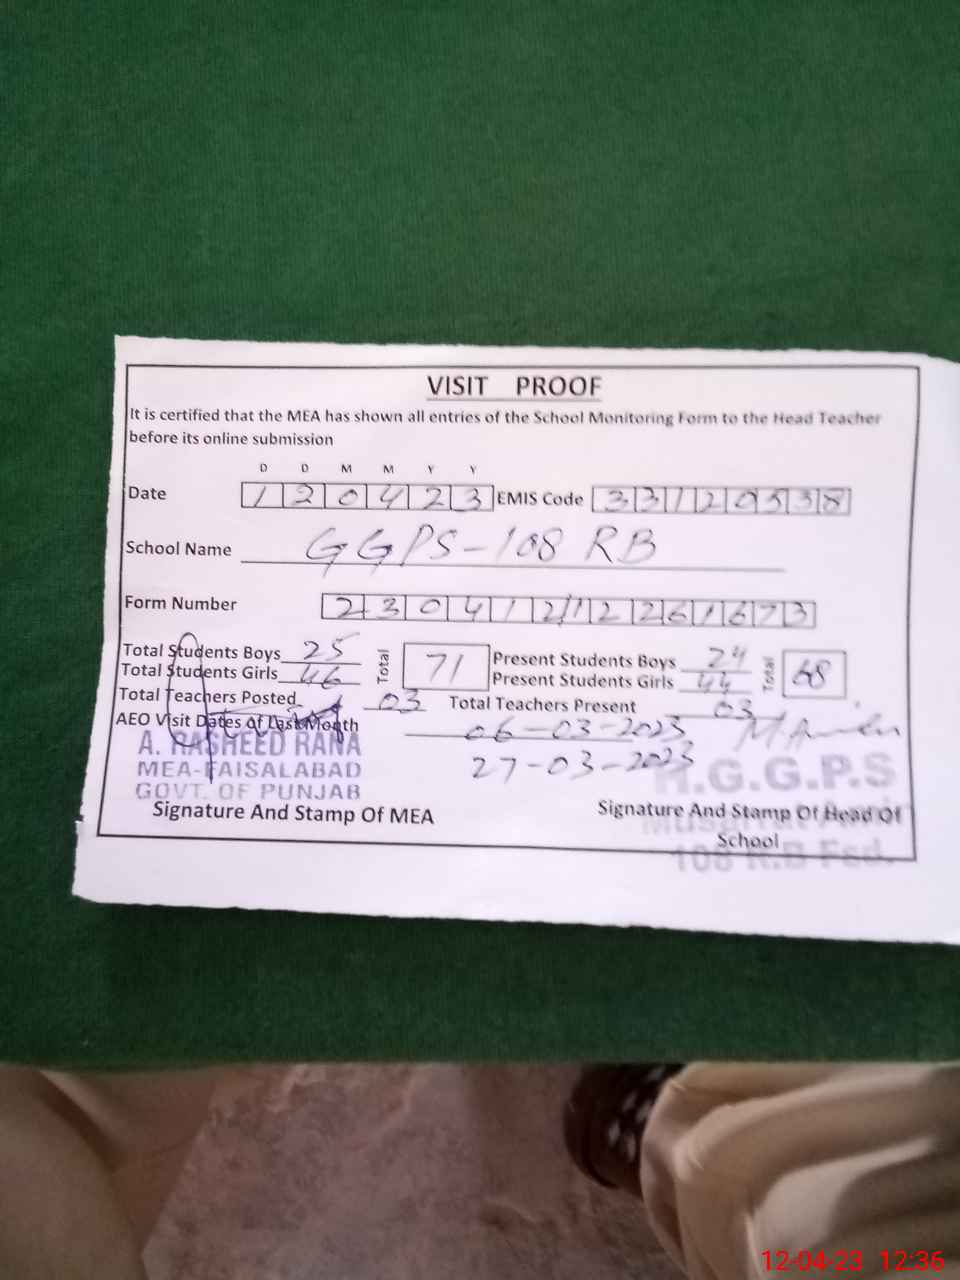 VISIT PROOF
It is certified that the MEA has shown all entries of the School Monitoring Form to the Head Teacher
before its online submission
D D M M Y Y
Date 120423 EMIS Code 33120538
School Name GGPS-108 RB
Form Number
Total Students Boys 25 Total 71 Present Students Boys 24 Total 68
Total Students Girls 46 Present Students Girls 44
Total Teachers Posted 03 Total Teachers Present 03
AEO Visit Dates of Last Month 06-03-2023
27-03-2023
A. RASHEED RANA
MEA-FAISALABAD
GOVT. OF PUNJAB
H.G.G.P.S
108 R.B Fsd.
Signature And Stamp Of MEA
Signature And Stamp Of Head Of
School
12-04-23 12:36